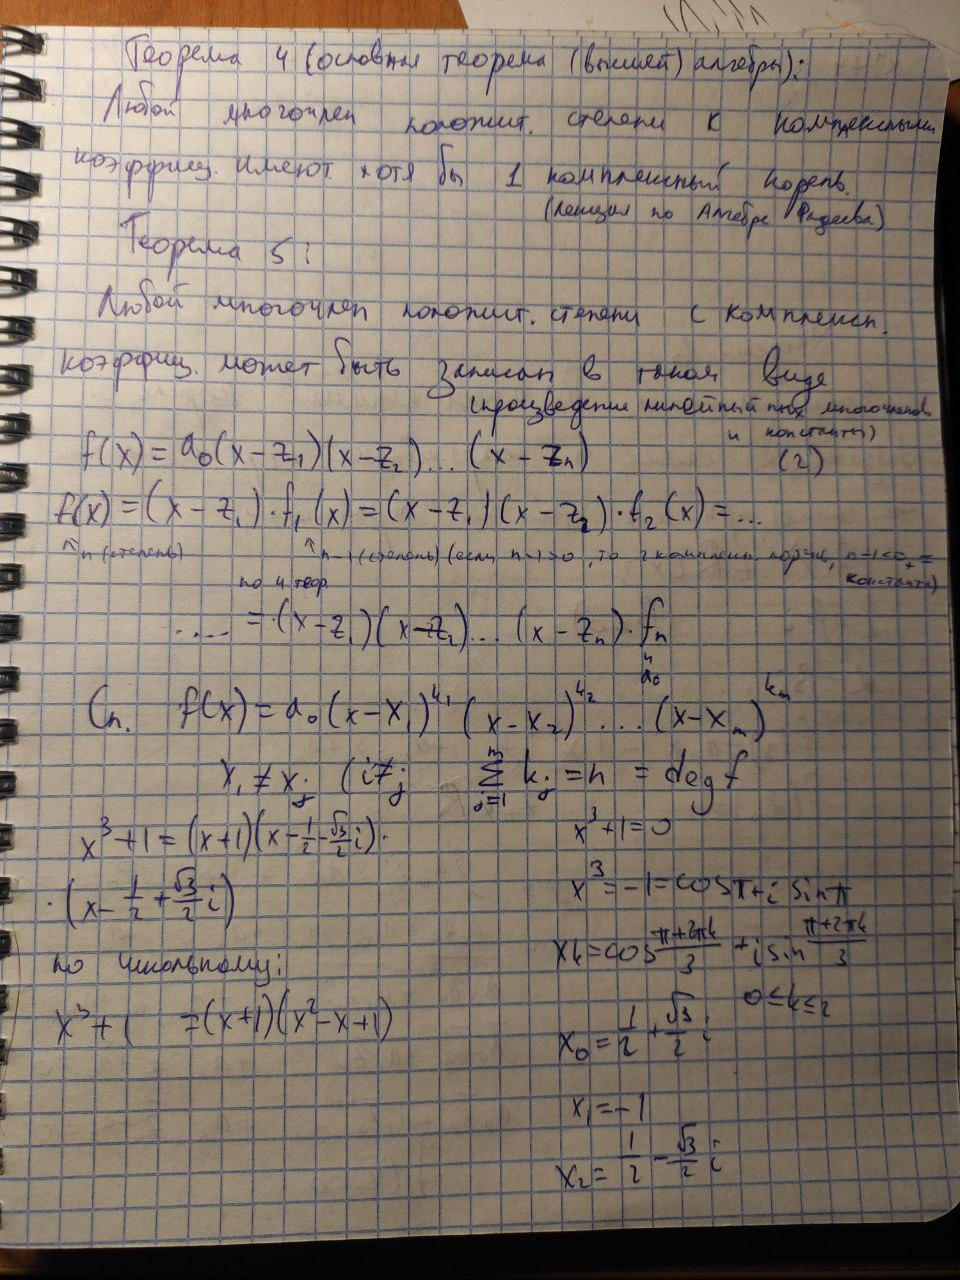 Теорема 4 (основная теорема (высшей) алгебры):
Любой многочлен положит. степени с комплексными
коэффиц. имеют хотя бы 1 комплексный корень.
(лекция по Алгебре Фадеева)
Теорема 5:
Любой многочлен положит. степени с комплексн.
коэффиц. может быть записан в таком виде
(произведение многочленов
и константы)
f(x) = a₀(x-z₁)(x-z₂)...(x-zₙ) (2)
f(x) = (x-z₁)·f₁(x) = (x-z₁)(x-z₂)·f₂(x) = ...
↑n (степень) ↑n-1 (степень) (если n-1>0, то комплексн. корень, =
константа)
по 4 теор.
.... = (x-z₁)(x-z₂)...(x-zₙ)·fₙ
a₀
Сл. f(x) = a₀(x-x₁)^k₁ (x-x₂)^k₂ .... (x-xₘ)^kₘ
xᵢ ≠ xⱼ (i≠j ∑ⱼ₌₁ᵐ kⱼ = n = deg f
x³+1 = (x+1)(x-1/2-√3/2 i)·
·(x-1/2+√3/2 i)
по школьному:
x³+1 = (x+1)(x²-x+1)
x³+1=0
x³=-1=cosπ+i sinπ
xk=cos (π+2πk)/3 + i sin (π+2πk)/3
0≤k≤2
x₀ = 1/2 + √3/2 i
x₁ = -1
x₂ = 1/2 - √3/2 i